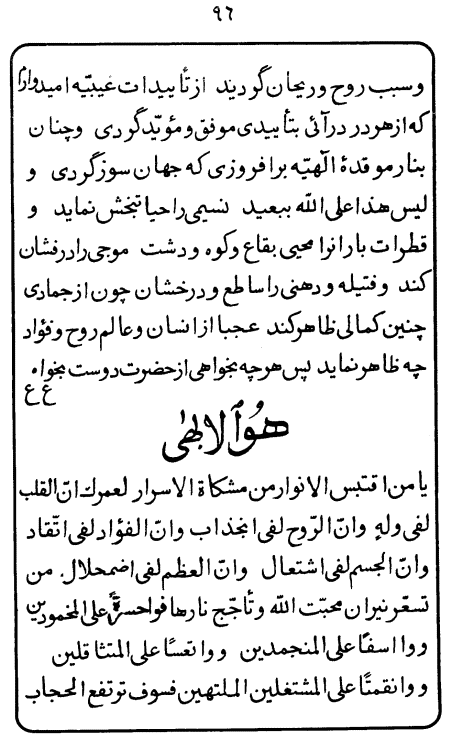 ۹٦
وسبب روح وريحان گرديد از تأييدات غيبيّه اميدوارم
كه از هر در درآئی بتأييدی موفق و مؤيّد گردی وچنان
بنار موقدهٔ الٓهيّه برافروزی كه جهان سوز گردی و
ليس هذا علی الله ببعيد نسيمی را حيات بخش نمايد و
قطرات بارانرا محيی بقاع وكوه ودشت موجی را درفشان
كند وفتيله ودهنی را ساطع ودرخشان چون از جمادی
چنين كمالی ظاهر كند عجبا از انسان وعالم روح وفؤاد
چه ظاهر نمايد پس هرچه بخواهی از حضرت دوست بخواه
ع ع
هو الابهی
يا من اقتبس الانوار من مشكاة الاسرار لعمرك انّ القلب
لفی ولهٍ وانّ الرّوح لفی انجذاب وانّ الفؤاد لفی اتّقاد
وانّ الجسم لفی اشتعال وانّ العظم لفی اضمحلال. من
تسعّر نيران محبّت الله وتأجّج نارها فواحسرةً علی المخمودين
ووا اسفًا علی المنجمدين ووا تعسًا علی المتثاقلين
ووا نقمتًا علی المشتغلين الملتهين فسوف ترتفع الحجاب